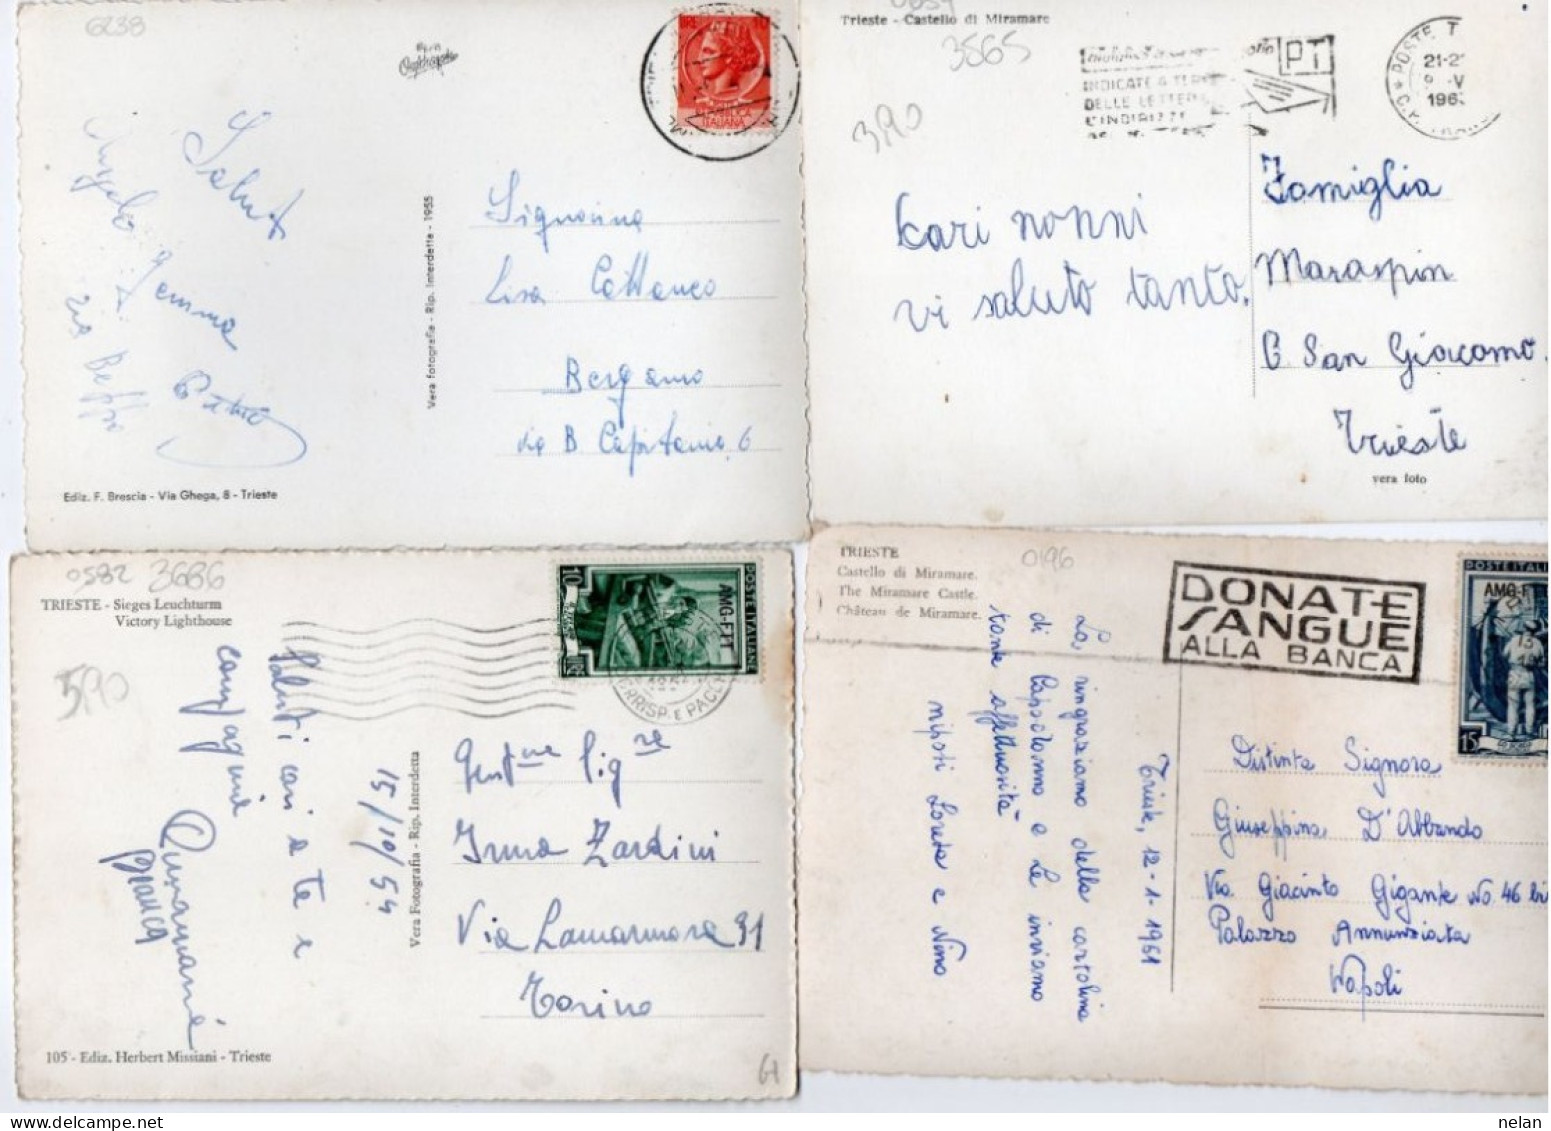 6238
Saluti
Gemma
via Beppi
Vera fotografia - Rip. Interdetta - 1955
Signorina
Lisa Cattaneo
Bergamo
via B. Capitanio 6
Ediz. F. Brescia - Via Ghega, 8 - Trieste
Trieste - Castello di Miramare
3565
390
PT
INDICATE A TERGO
DELLE LETTERE
L'INDIRIZZO
POSTE T
21-2
196
Cari nonni
vi saluto tanto.
Famiglia
Maraspin
C. San Giacomo.
Trieste
vera foto
0582 3686
TRIESTE - Sieges Leuchturm
Victory Lighthouse
590
10
AMG-FTT
POSTE ITALIANE
CORRISP. E PACCHI
Saluti cari a te e
compagnie
Bianca
15/10/54
Vera Fotografia - Rip. Interdetta
Gent.me Sig.re
Irma Zardini
Via Lamarmora 31
Torino
105 - Ediz. Herbert Missiani - Trieste
61
TRIESTE
Castello di Miramare.
The Miramare Castle.
Château de Miramare.
0196
DONATE
SANGUE
ALLA BANCA
POSTE ITAL
AMG-F
15
La ringraziamo della cartolina
di Capodanno e Le inviamo
tante affettuosità
nipoti Loreta e Nino
Trieste, 12-1-1951
Distinta Signora
Giuseppina D'Abbando
Via Giacinto Gigante No. 46 bi
Palazzo Annunziata
Napoli
nelan